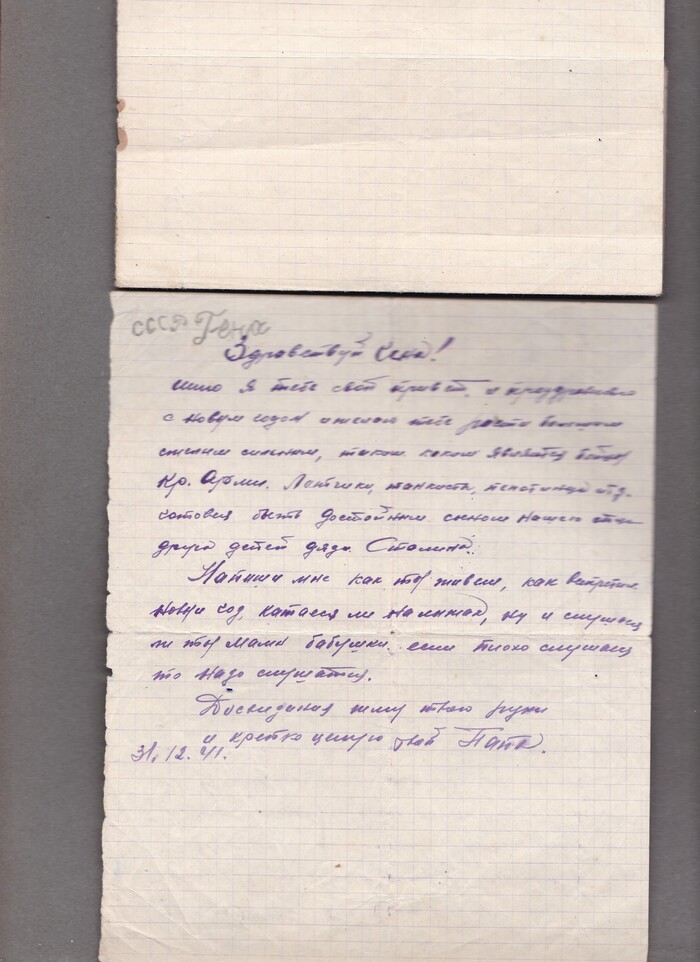 СССР Гена
Здравствуй Гена!
шлю я тебе свой привет и праздравляю
с новым годом и желаю тебе расти большим
смелым сильным, таким каким является боец
Кр. Армии. Лётчики, танкисты, пехотинцы и т.д.
готовся быть достойным сыном нашего отца
друга детей дяди Сталина.
Напиши мне как ты живеш, как встретил
новый год, катаеся ли на лыжах, ну и слушаеш
ли ты маму бабушку. если плохо слушаеш
то надо слушатся.
Досвидания жму твою руку
и крепко целую твой Папа.
31.12.41.